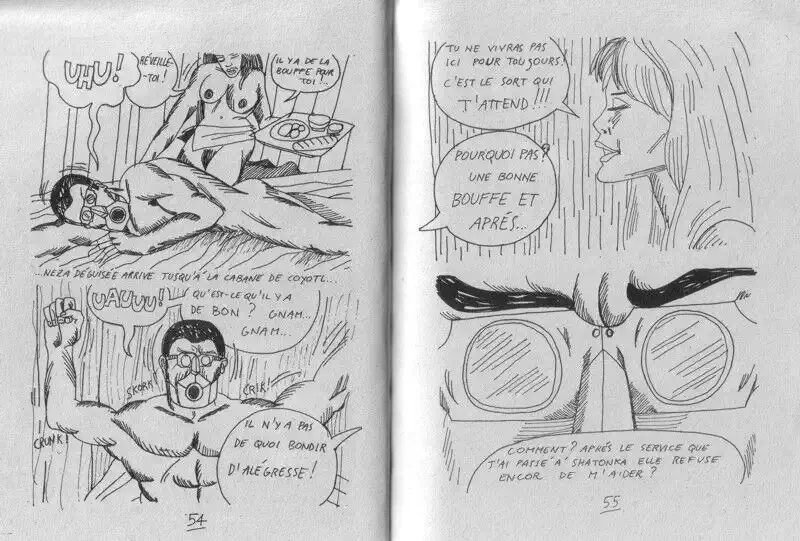 UHU!
RÉVEILLE-
TOI!
IL Y A DE LA
BOUFFE POUR
TOI!..
...NEZA DÉGUISÉE ARRIVE TUSQU'Á LA CABANE DE COYOTL...
UAUUU!
QU'EST-CE QU'IL Y A
DE BON? GNAM...
GNAM...
SKORK!
CRIK!
CRUNK!
IL N'Y A PAS
DE QUOI BONDIR
D'ALÉGRESSE!
54
TU NE VIVRAS PAS
ICI POUR TOUJOURS.
C'EST LE SORT QUI
T'ATTEND!!!
POURQUOI PAS?
UNE BONNE
BOUFFE ET
APRÉS...
COMMENT? APRÉS LE SERVICE QUE
T'AI PASSÉ Á SHATONKA ELLE REFUSE
ENCOR DE M'AIDER?
55